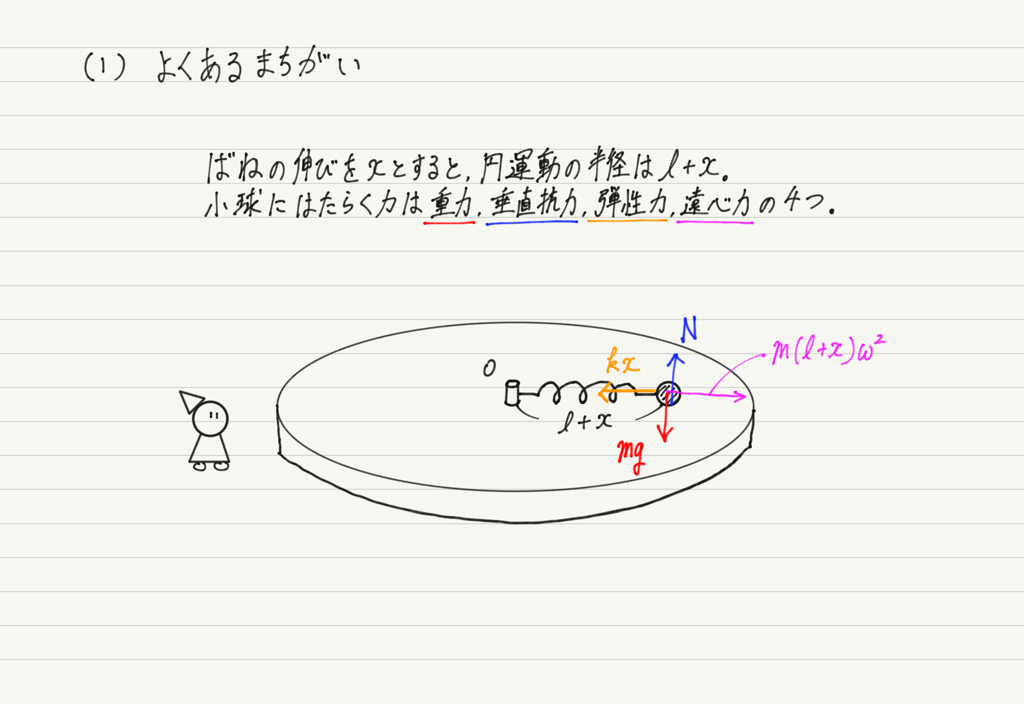 (1) よくあるまちがい
ばねの伸びをxとすると,円運動の半径はl+x.
小球にはたらく力は重力,垂直抗力,弾性力,遠心力の4つ.
N
m(l+x)ω²
kx
O
l+x
mg